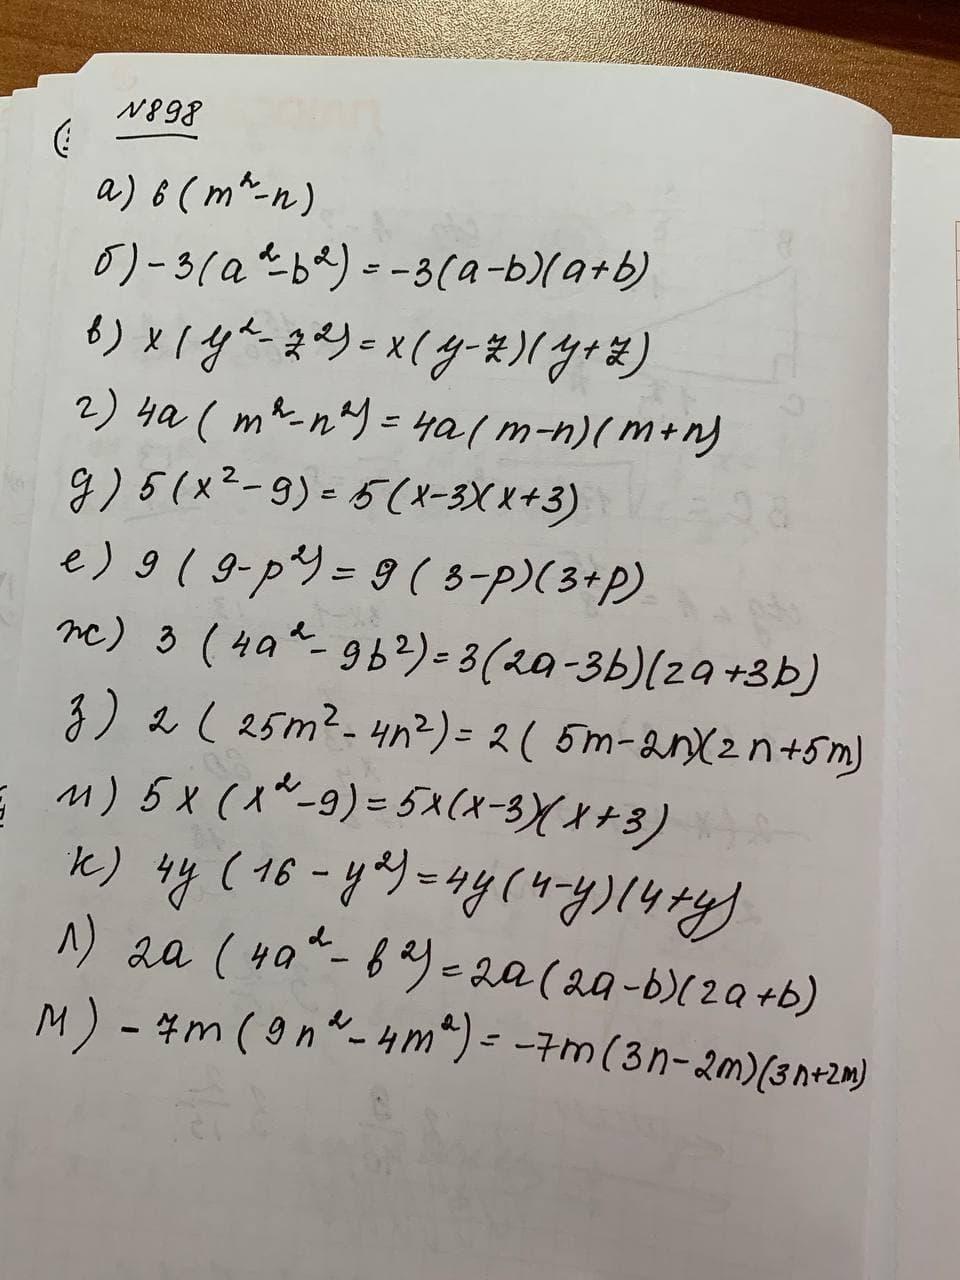 №898
а) 6(m²-n)
б) -3(a²-b²) = -3(a-b)(a+b)
в) x(y²-z²) = x(y-z)(y+z)
г) 4a(m²-n²) = 4a(m-n)(m+n)
д) 5(x²-9) = 5(x-3)(x+3)
е) 9(9-p²) = 9(3-p)(3+p)
ж) 3(4a²-9b²) = 3(2a-3b)(2a+3b)
з) 2(25m²-4n²) = 2(5m-2n)(2n+5m)
и) 5x(x²-9) = 5x(x-3)(x+3)
к) 4y(16-y²) = 4y(4-y)(4+y)
л) 2a(4a²-b²) = 2a(2a-b)(2a+b)
м) -7m(9n²-4m²) = -7m(3n-2m)(3n+2m)